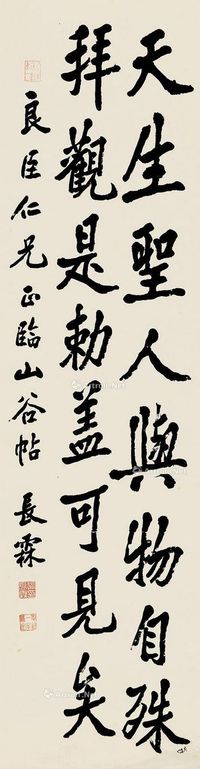 天生聖人與物自殊
拜觀是勅蓋可見矣
良臣仁兄正臨山谷帖 長霖